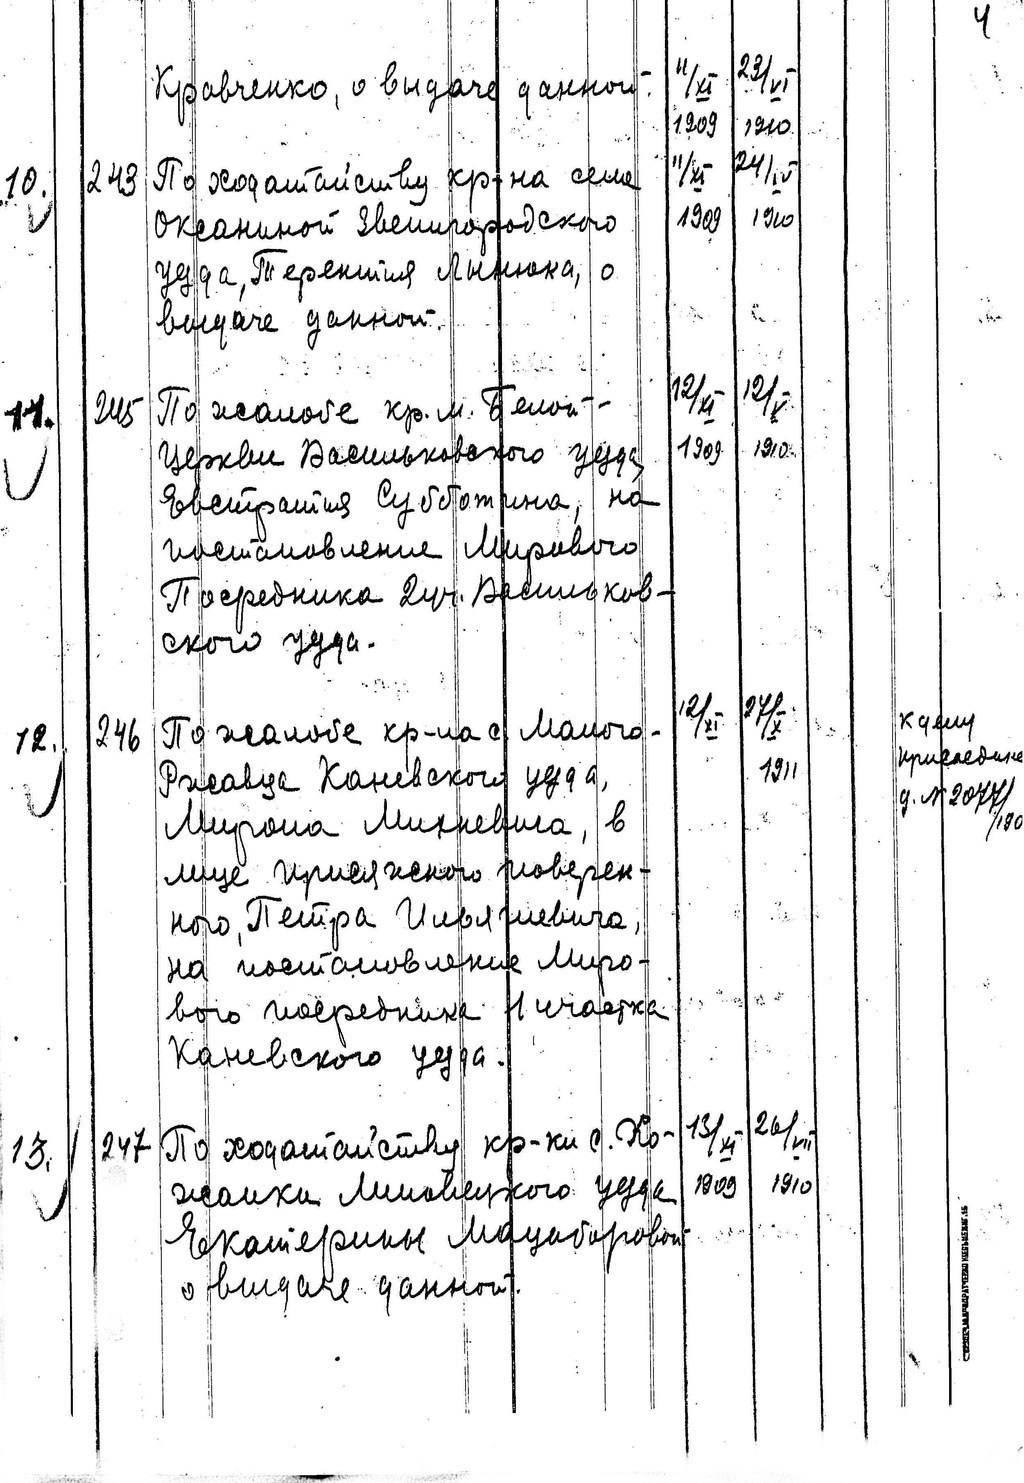 4
Кравченко, о выдаче данной. 11/XI 23/VI
1909 1910
10. 243 По ходатайству кр-на села 11/XI 24/IV
Оксаниной Звенигородского 1909 1910
уезда, Терентия Лынюка, о
выдаче данной.
11. 245 По жалобе кр. м. Белой- 12/XI 12/V
Церкви Васильковского уезда, 1909 1910
Евстратия Субботина, на
постановление Мирового
Посредника 2 уч. Васильков-
ского уезда.
12. 246 По жалобе кр-на с. Малого- 12/XI 27/X к делу
Ржавца Каневского уезда, 1911 присоедине
Мирона Михневича, в д. № 2077/190
лице присяжного поверен-
ного, Петра Ильяшевича,
на постановление Миро-
вого посредника 1 участка
Каневского уезда.
13. 247 По ходатайству кр-ки с. Ко- 13/XI 26/VII
жанки Липовецкого уезда 1909 1910
Екатерины Мацаборовой
о выдаче данной.